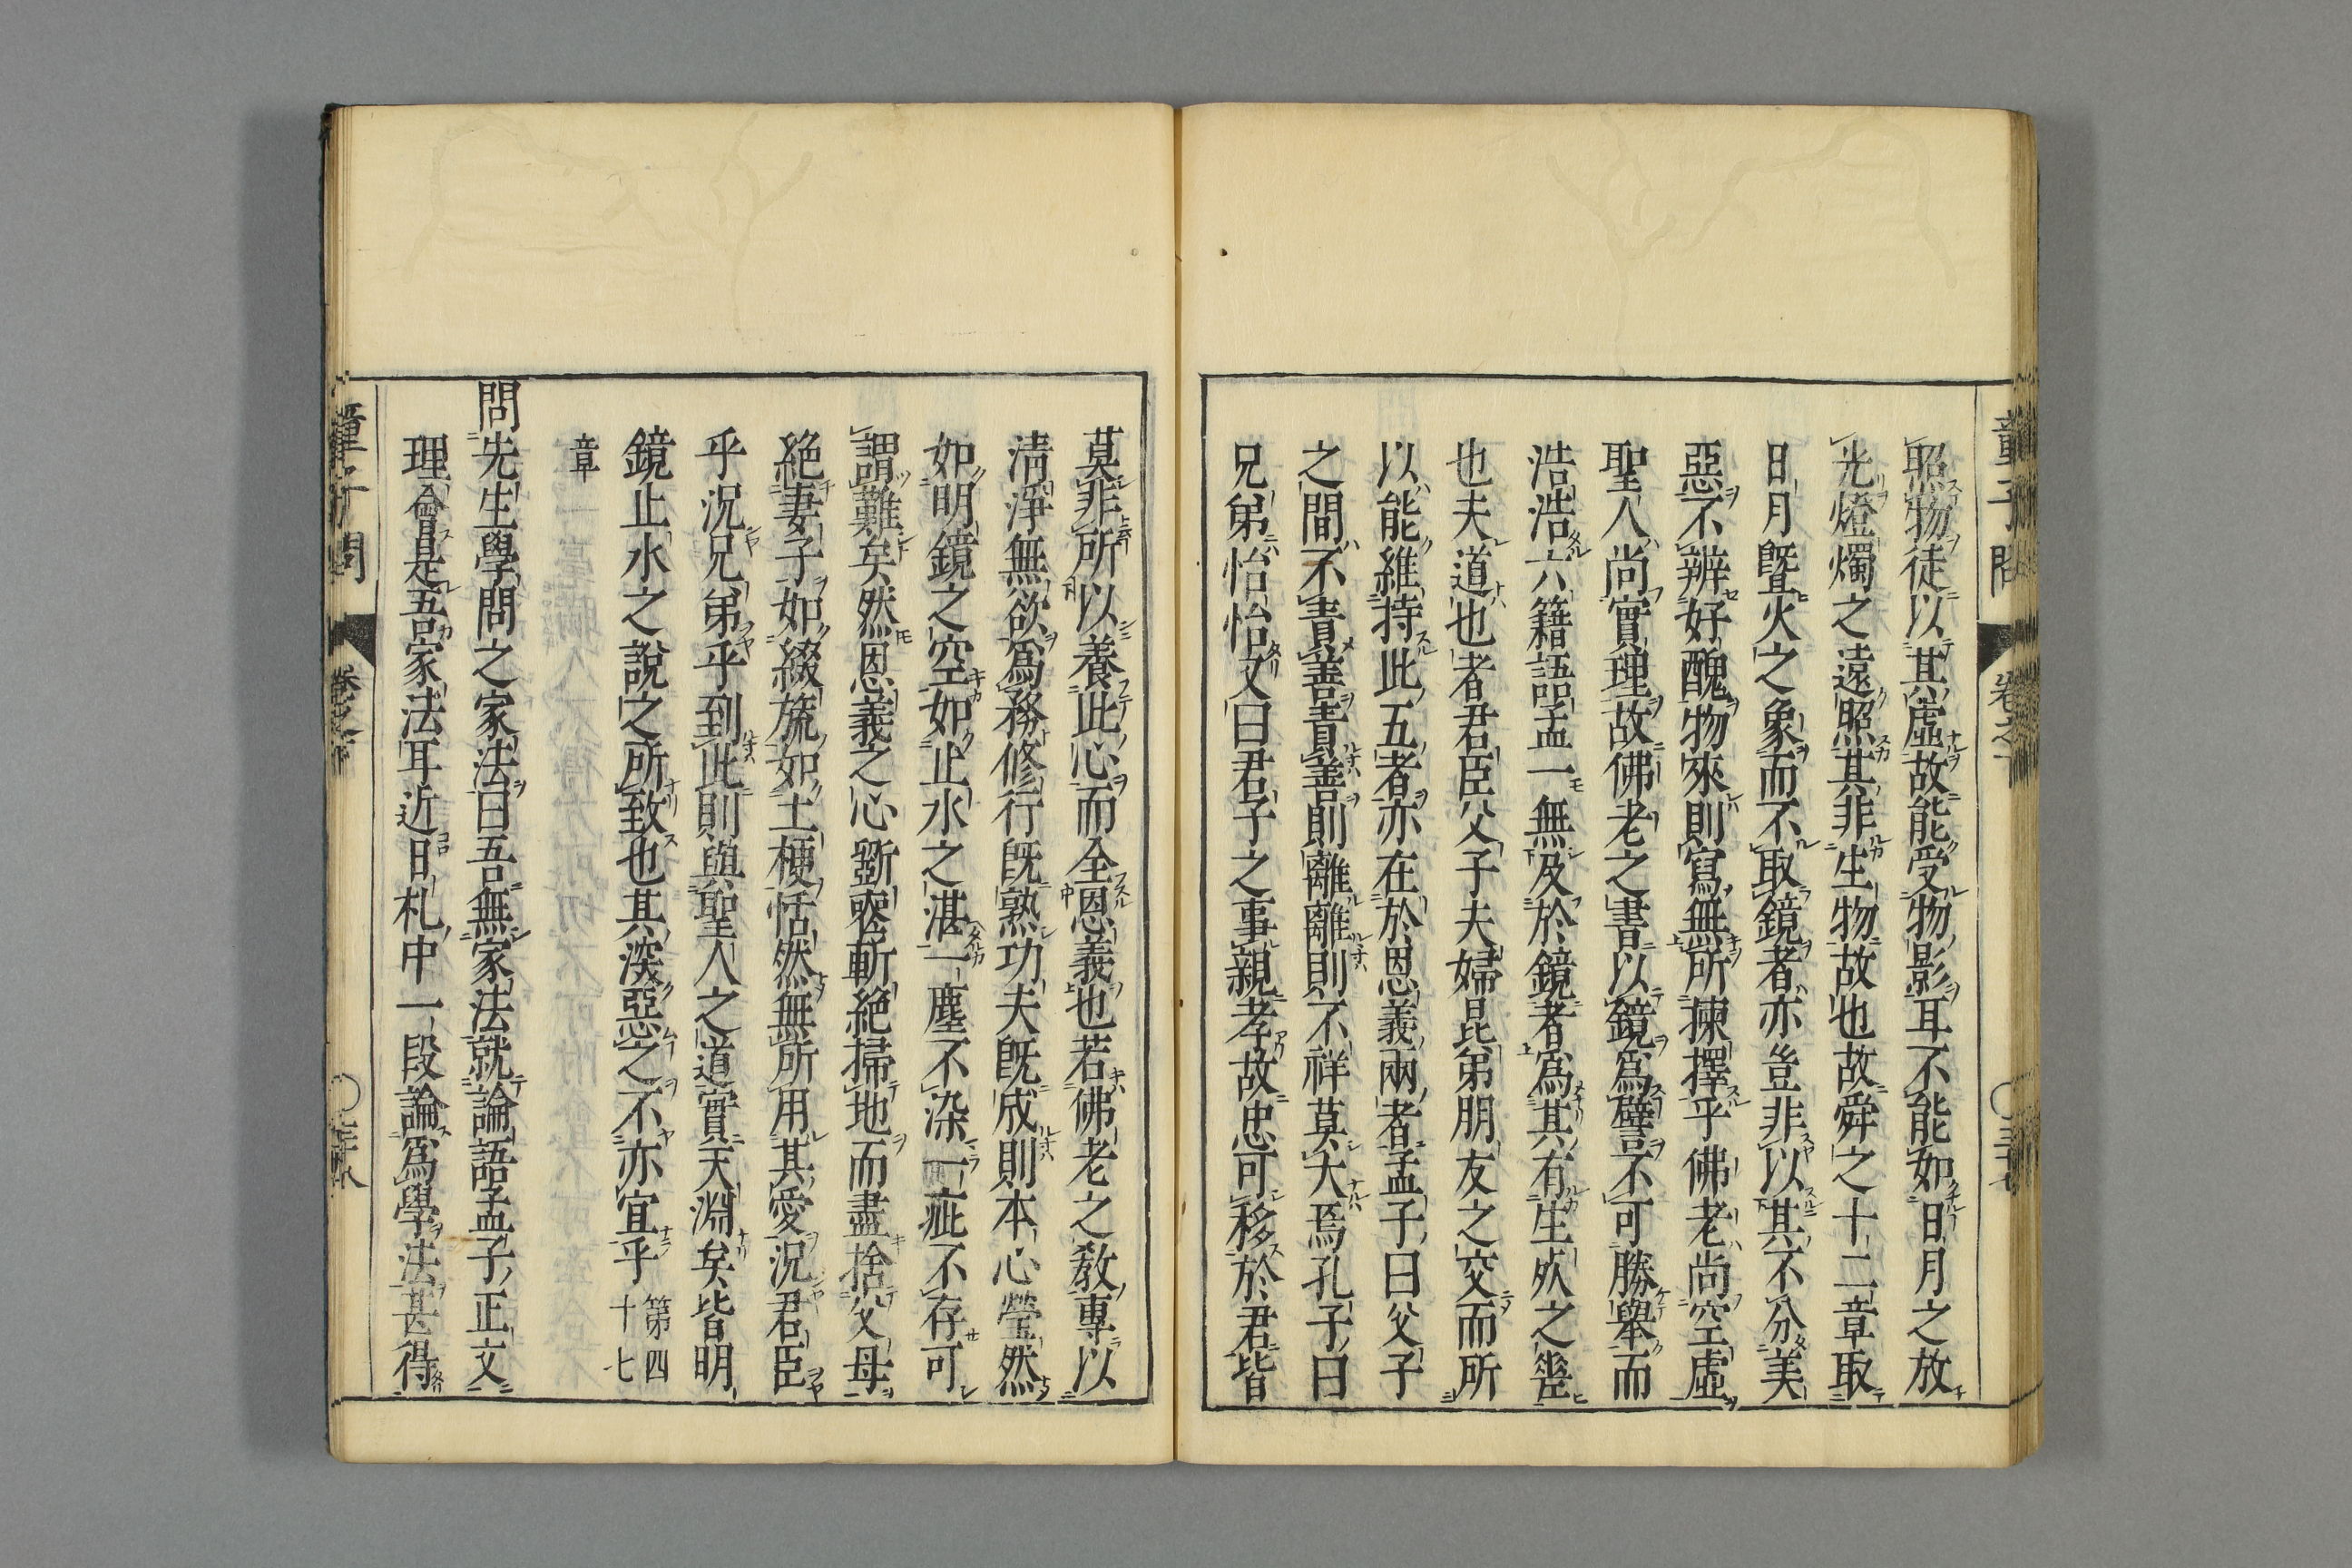 童子問　卷之下　〇三十七
照物徒以其虛故能受物影耳不能如日月之放
光燈燭之遠照其非生物故也故舜之十二章取
日月曁火之象而不取鏡者亦豈非以其不分美
惡不辨好醜物來則寫無所揀擇乎佛老尚空虛
聖人尚實理故佛老之書以鏡爲譬不可勝舉而
浩浩六籍語孟一無及於鏡者爲其有生死之差
也夫道也者君臣父子夫婦昆弟朋友之交而所
以能維持此五者亦在於恩義兩者孟子曰父子
之間不責善責善則離離則不祥莫大焉孔子曰
兄弟怡怡又曰君子之事親孝故忠可移於君皆
莫非所以養此心而全恩義也若佛老之教專以
淸淨無欲爲務修行既熟功夫既成則本心瑩然
如明鏡之空如止水之湛一塵不染一疵不存可
謂難矣然恩義之心斷喪斬絶掃地而盡捨父母
絶妻子如綴旒如土梗恬然無所用其愛況君臣
乎況兄弟乎到此則與聖人之道實天淵矣皆明
鏡止水之說之所致也其深惡之不亦宜乎 第四十七
章
問先生學問之家法曰吾無家法就論語孟子正文
理會是吾家法耳近日札中一段論爲學法甚得
童子問　卷之下　〇三十八